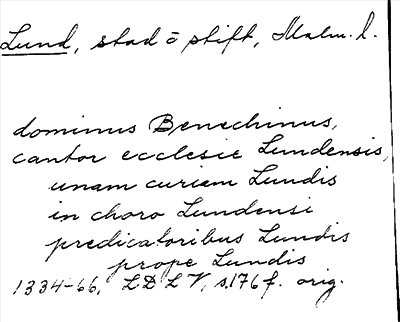 Lund, stad o stift, Malm. l.
dominus Benechinus,
cantor ecclesie Lundensis,
unam curiam Lundis
in choro Lundensi
predicatoribus Lundis
prope Lundis
1334-66, LDLV, s.176 f. orig.